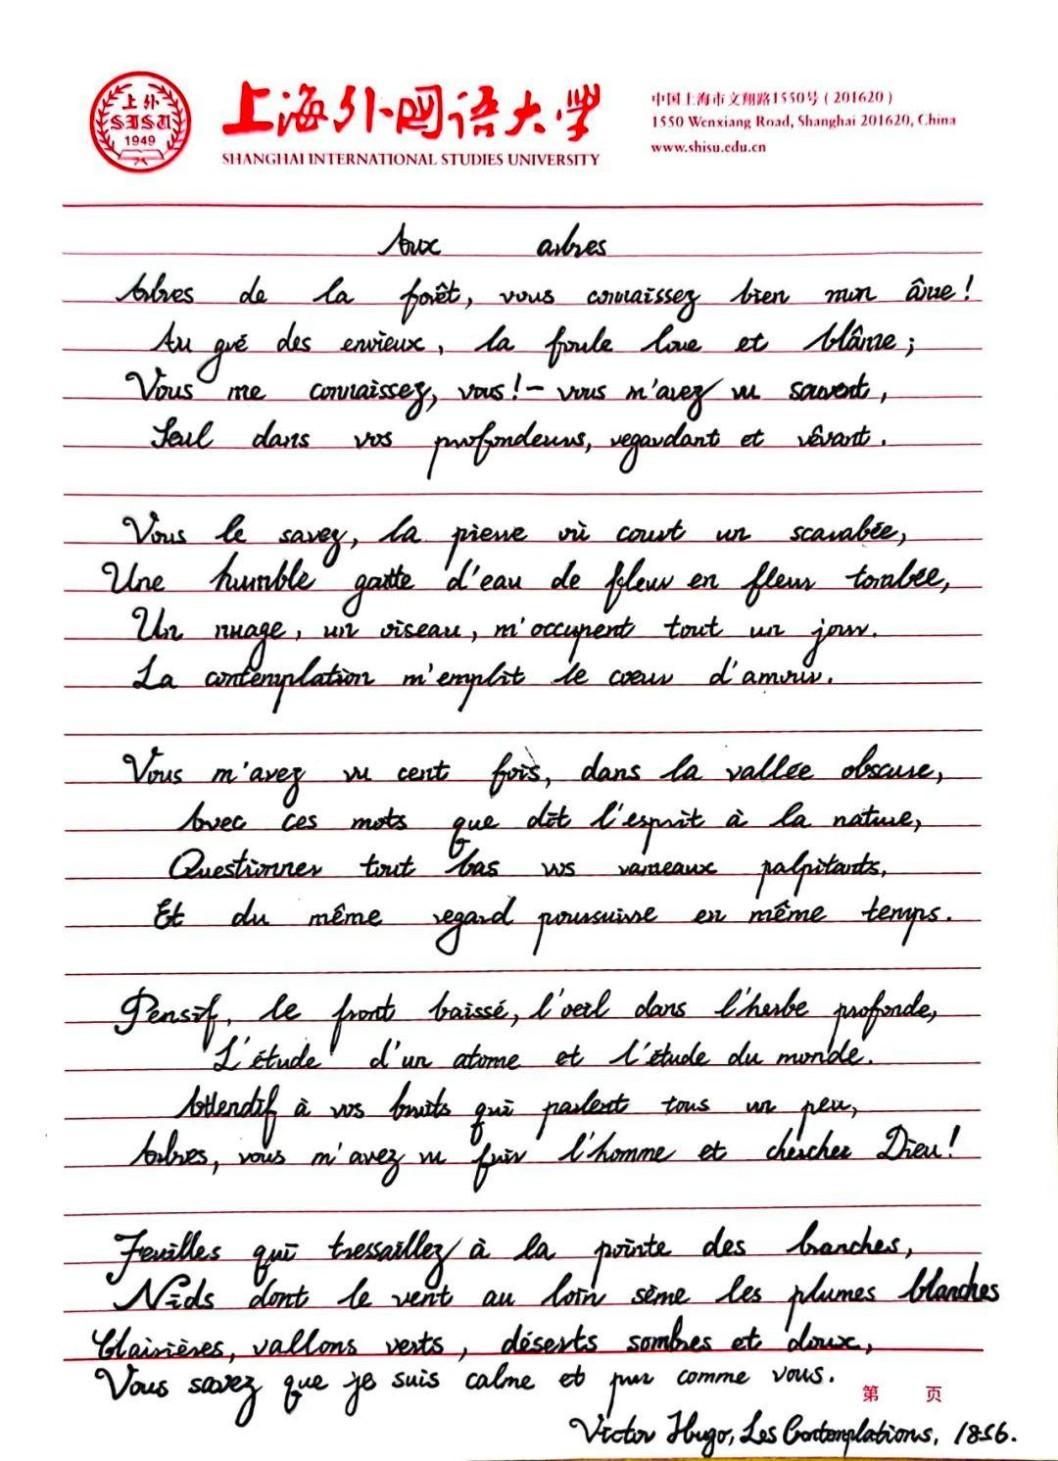 上外
SISU
1949
上海外国语大学
SHANGHAI INTERNATIONAL STUDIES UNIVERSITY
中国上海市文翔路1550号（201620）
1550 Wenxiang Road, Shanghai 201620, China
www.shisu.edu.cn
Aux arbres
Arbres de la forêt, vous connaissez bien mon âme !
Au gré des envieux, la foule loue et blâme ;
Vous me connaissez, vous ! – vous m'avez vu souvent,
Seul dans vos profondeurs, regardant et rêvant.
Vous le savez, la pierre où court un scarabée,
Une humble goutte d'eau de fleur en fleur tombée,
Un nuage, un oiseau, m'occupent tout un jour.
La contemplation m'emplit le cœur d'amour.
Vous m'avez vu cent fois, dans la vallée obscure,
Avec ces mots que dit l'esprit à la nature,
Questionner tout bas vos rameaux palpitants,
Et du même regard poursuivre en même temps.
Pensif, le front baissé, l'œil dans l'herbe profonde,
L'étude d'un atome et l'étude du monde.
Attentif à vos bruits qui parlent tous un peu,
Arbres, vous m'avez vu fuir l'homme et chercher Dieu !
Feuilles qui tressaillez à la pointe des branches,
Nids dont le vent au loin sème les plumes blanches
Clairières, vallons verts, déserts sombres et doux,
Vous savez que je suis calme et pur comme vous.
第 页
Victor Hugo, Les Contemplations, 1856.